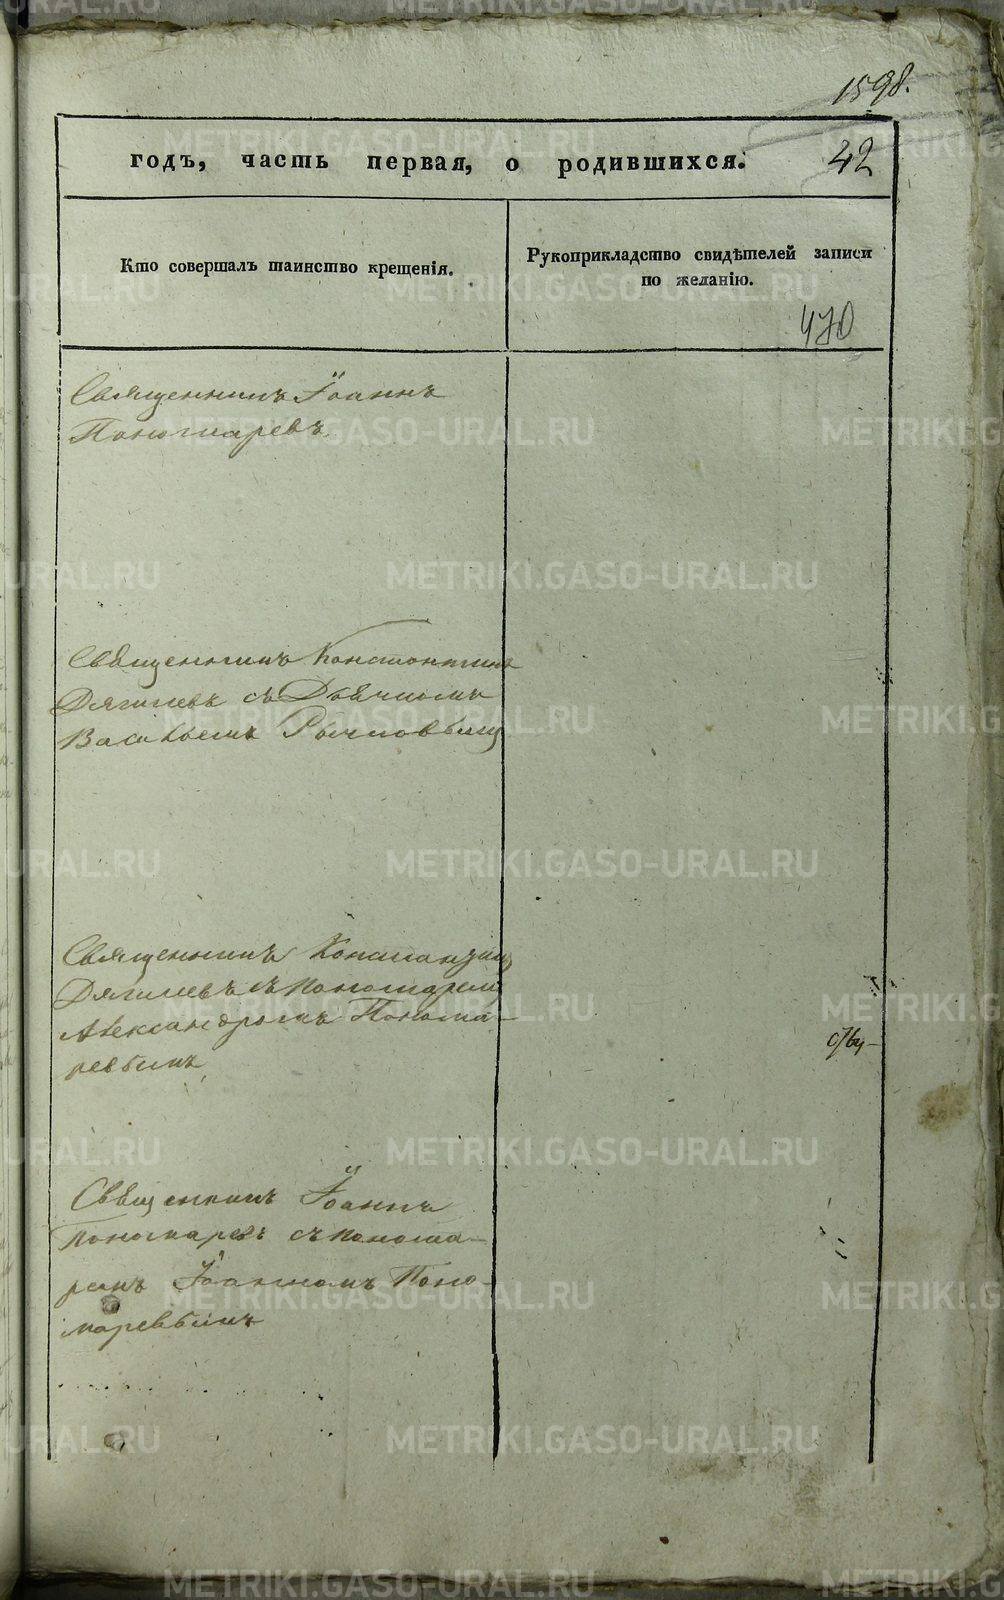 1598.
годъ, часть первая, о родившихся. 42
Кто совершалъ таинство крещенія.
Рукоприкладство свидѣтелей записи
по желанію.
470
Священникъ Іоаннъ
Пономаревъ
Священникъ Константинъ
Дягилевъ съ Дьячкомъ
Васильемъ Рычковымъ
Священникъ Константинъ
Дягилевъ съ пономаремъ
Александромъ Понома-
ревымъ
Священникъ Іоаннъ
Пономаревъ съ понома-
ремъ Іоанномъ Поно-
маревымъ
METRIKI.GASO-URAL.RU